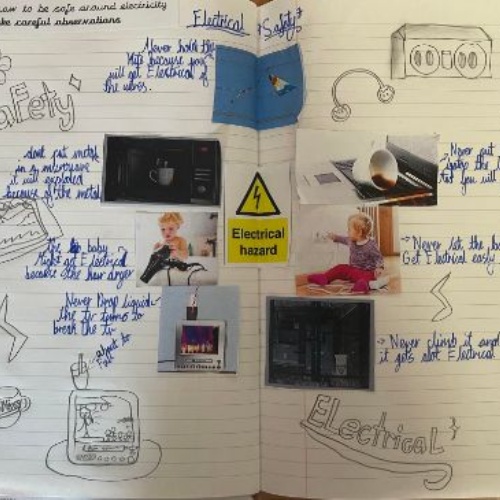 how to be safe around electricity
ke careful observations
Electrical Safety
Never hold the
because you
will get Electrical of
the wires.
Safety
dont put metal
in a microwave
it will exploded
because of the metal
Never put
Electrical
hazard
The baby
might get Electrical
because the hair dryer
Never let the ba
Get Electrical easy.
Never Drop liquid
the tv turns to
break the tv
about to
fall
Never climb it and
it gets alot Electrical
Electrical